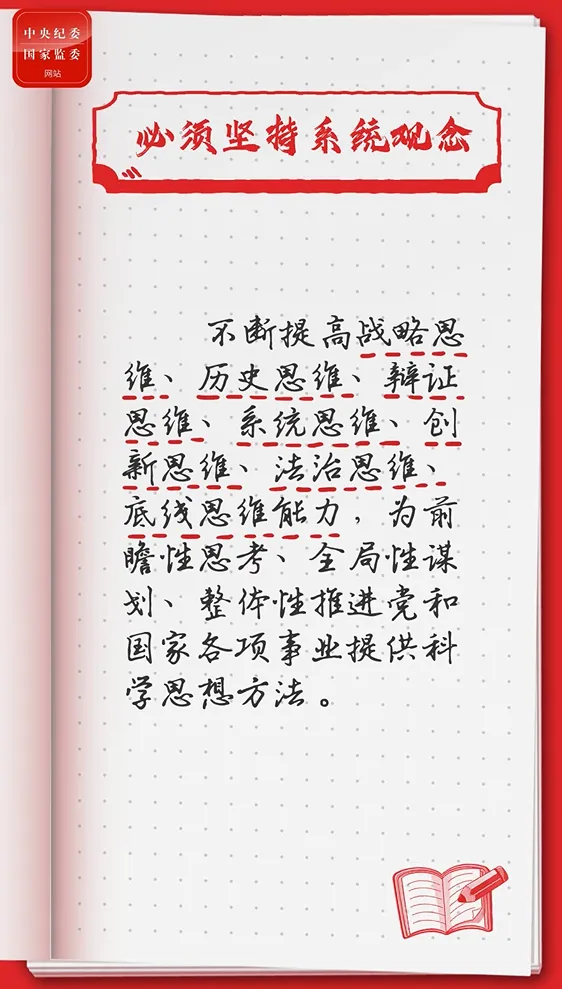 中央纪委
国家监委
网站
必须坚持系统观念
不断提高战略思
维、历史思维、辩证
思维、系统思维、创
新思维、法治思维、
底线思维能力，为前
瞻性思考、全局性谋
划、整体性推进党和
国家各项事业提供科
学思想方法。